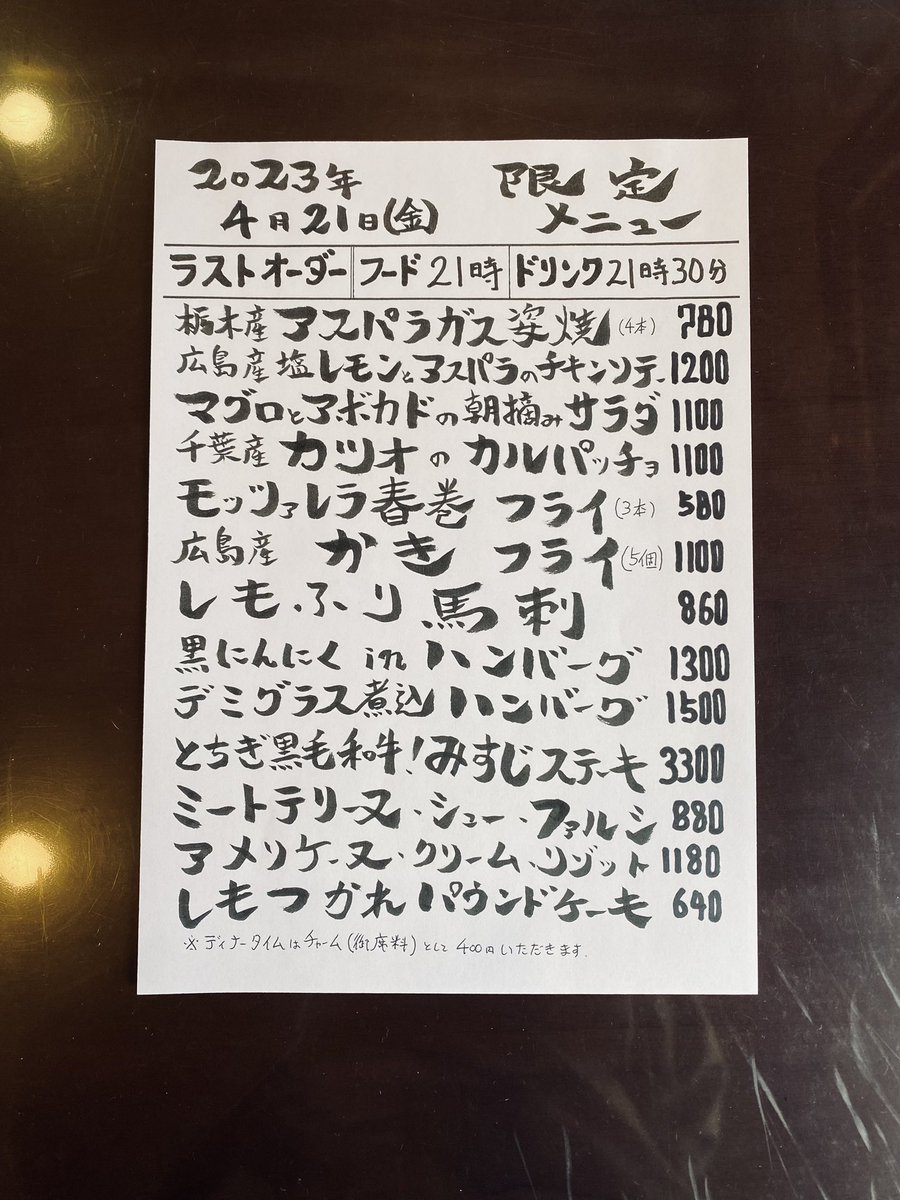 2023年 限定
4月21日(金) メニュー
ラストオーダー フード21時 ドリンク21時30分
栃木産 アスパラガス姿焼(4本) 780
広島産塩レモンとアスパラのチキンソテー 1200
マグロとアボカドの朝摘みサラダ 1100
千葉産 カツオのカルパッチョ 1100
モッツァレラ春巻フライ(3本) 580
広島産 かきフライ(5個) 1100
しもふり馬刺 860
黒にんにくinハンバーグ 1300
デミグラス煮込ハンバーグ 1500
とちぎ黒毛和牛!みすじステーキ 3300
ミートテリーヌ・シュー・ファルシ 880
アメリケーヌ・クリーム・リゾット 1180
しもつかれパウンドケーキ 640
※ディナータイムはチャーム(御席料)として400円いただきます.